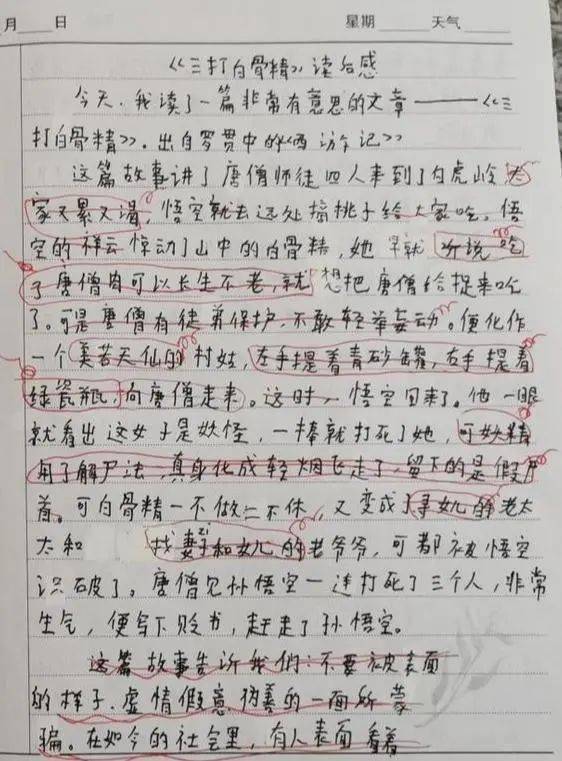 月 日 星期 天气
《三打白骨精》读后感
今天,我读了一篇非常有意思的文章——《三
打白骨精》.出自罗贯中的《西游记》
这篇故事讲了唐僧师徒四人来到了白虎岭,大
家又累又渴,悟空就去远处摘桃子给大家吃,悟
空的祥云惊动了山中的白骨精,她早就听说吃
了唐僧肉可以长生不老,就想把唐僧给捉来吃
了。可是唐僧有徒弟保护,不敢轻举妄动。便化作
一个美若天仙的村姑,左手提着青砂罐,右手提着
绿瓷瓶,向唐僧走来。这时,悟空回来了。他一眼
就看出这女子是妖怪,一棒就打死了她,可妖精
用了解尸法,真身化成轻烟飞走了,留下的是假尸
首。可白骨精一不做二不休,又变成了寻女儿的老太
太和 找妻子和女儿的老爷爷,可都被悟空
zi
识破了。唐僧见孙悟空一连打死了三个人,非常
生气,便写下贬书,赶走了孙悟空。
这篇故事告诉我们:不要被表面
的样子.虚情假意.伪善的一面所蒙
骗。在如今的社会里,有人表面看着